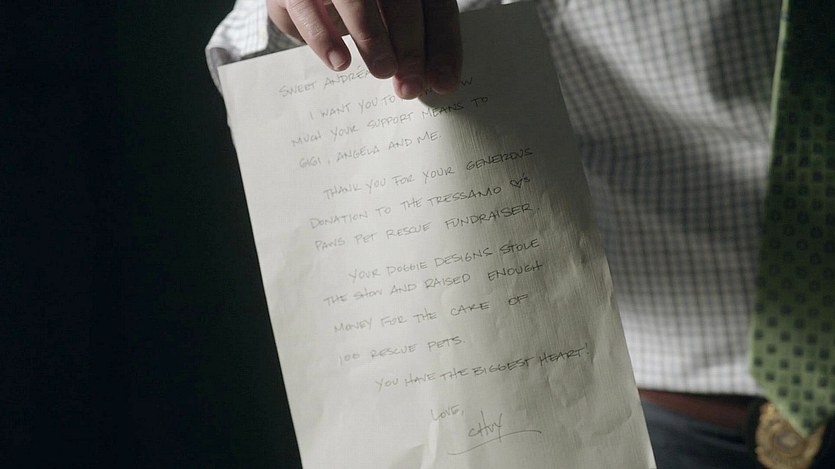 SWEET ANDREA
I WANT YOU TO KNOW
MUCH YOUR SUPPORT MEANS TO
GIGI, ANGELA AND ME.
THANK YOU FOR YOUR GENEROUS
DONATION TO THE TRESSAMO ♡'S
PAWS PET RESCUE FUNDRAISER.
YOUR DOGGIE DESIGNS STOLE
THE SHOW AND RAISED ENOUGH
MONEY FOR THE CARE OF
100 RESCUE PETS.
YOU HAVE THE BIGGEST HEART!
LOVE,
CHUY